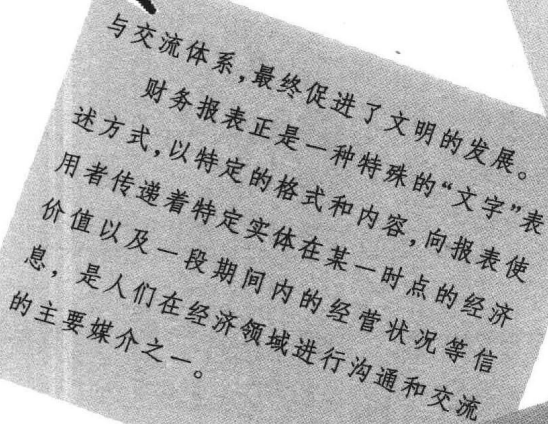 与交流体系,最终促进了文明的发展。
财务报表正是一种特殊的“文字”表
述方式,以特定的格式和内容,向报表使
用者传递着特定实体在某一时点的经济
价值以及一段期间内的经营状况等信
息，是人们在经济领域进行沟通和交流
的主要媒介之一。